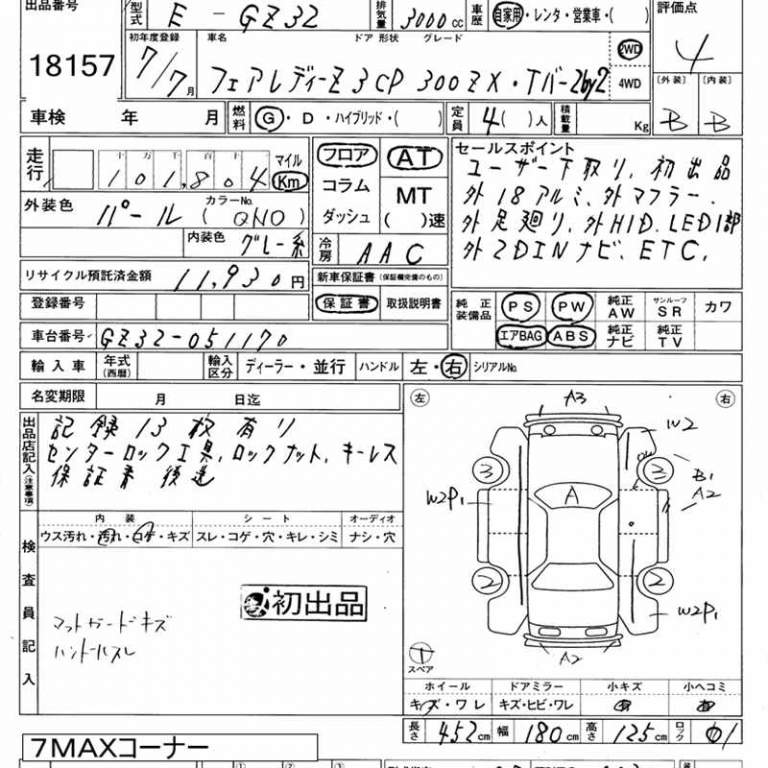 出品番号 型式 E - GZ32 排気量 3000cc 車歴 自家用・レンタ・営業車・( ) 評価点
18157 初年度登録 車名 ドア 形状 グレード 2WD 4
7/7月 フェアレディーZ 3CP 300ZX・Tバー2by2 4WD 〔外装〕〔内装〕
車検 年 月 燃料 G・D・ハイブリッド・( ) 定員 4( )人 積載量 Kg B B
走行 十万千百十 マイル フロア AT セールスポイント
101,804 Km コラム MT ユーザー下取り、初出品
外装色 パール カラーNo. (QH0) ダッシュ ( )速 外18アルミ、外マフラー、
内装色 グレー系 冷房 AAC 外足廻り、外HID、LED1部
外2DINナビ、ETC、
リサイクル預託済金額 11,930円 新車保証書(保証継続車のもの)
登録番号 保証書 取扱説明書 純正装備品 PS PW 純正AW サンルーフSR カワ
車台番号 GZ32-051170 エアBAG ABS 純正ナビ 純正TV
輸入車 年式(西暦) 輸入区分 ディーラー・並行 ハンドル 左・右 シリアルNo.
名変期限 月 日迄 左 右
出品店記入(注意事項) 記録13枚有り
センターロック工具、ロックナット、キーレス
保証書後送
A3
W2
3 2 B1
A2
A
W2P1
2 2
W2P1
A2
スペア
内装 シート オーディオ
ウス汚れ・汚れ・コゲ・キズ スレ・コゲ・穴・キレ・シミ ナシ・穴
検査員記入 初出品
マットガードキズ
ハンドルスレ
ホイール ドアミラー 小キズ 小ヘコミ
キズ・ワレ キズ・ヒビ・ワレ
長さ 452cm 幅 180cm 高さ 125cm ロック
7MAXコーナー